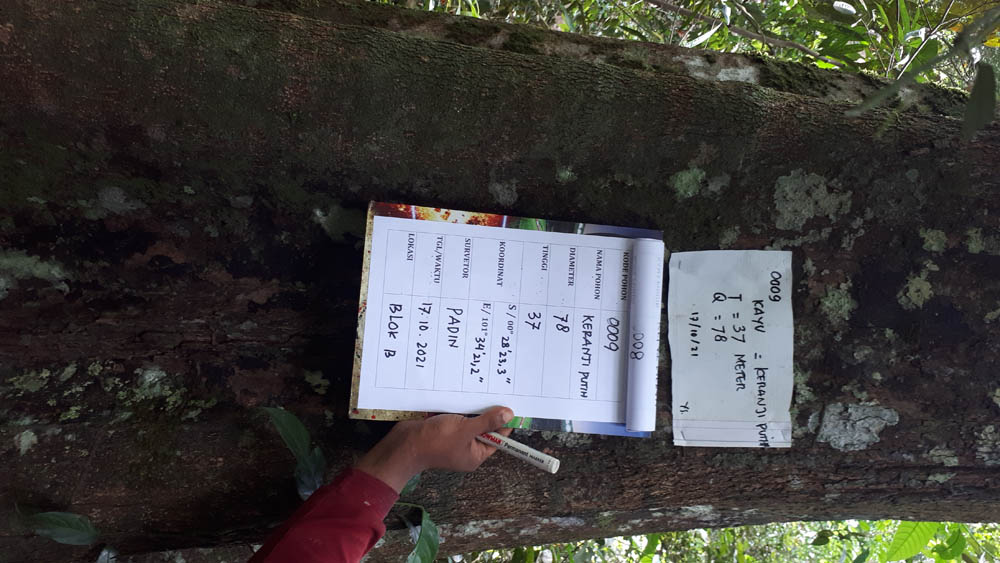 0009
KAYU = KERANJI PUTIH
T = 37 METER
Q = 78
17/10/21
Ys.
0008
KODE POHON 0009
NAMA POHON KERANJI PUTIH
DIAMETER 78
TINGGI 37
KOORDINAT S / 00° 28'23,3"
E/ 101° 34'21,2"
SURVETOR PADIN
TGL/WAKTU 17.10.2021
LOKASI BLOK B